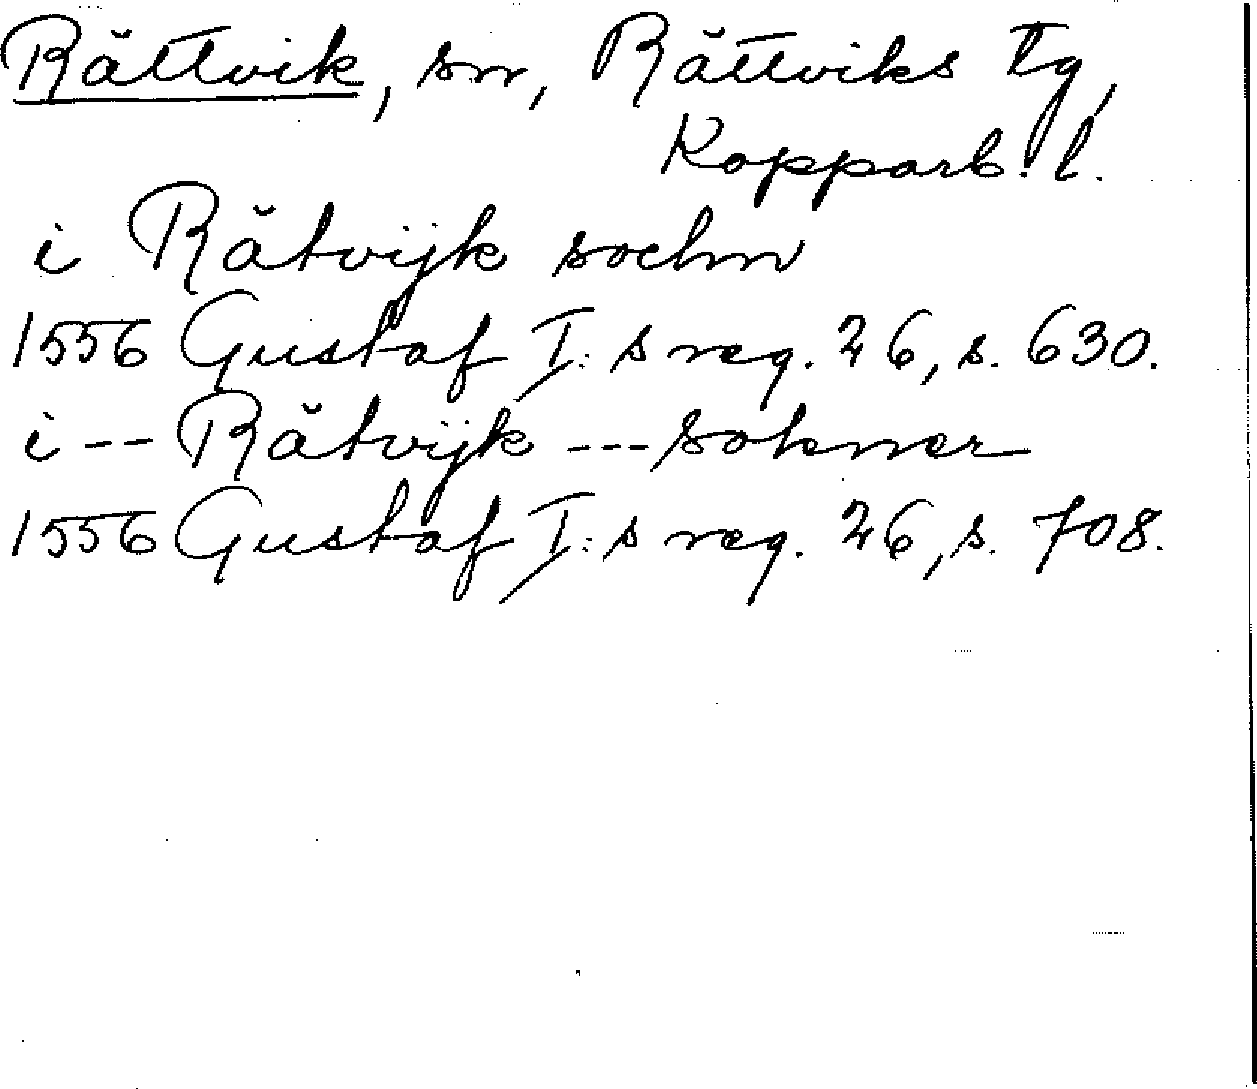 Rättvik, sn, Rättviks tg,
Kopparb. l.
i Rätvijk sochn
1556 Gustaf I:s reg. 26, s. 630.
i -- Rätvijk --- sokner
1556 Gustaf I:s reg. 26, s. 708.